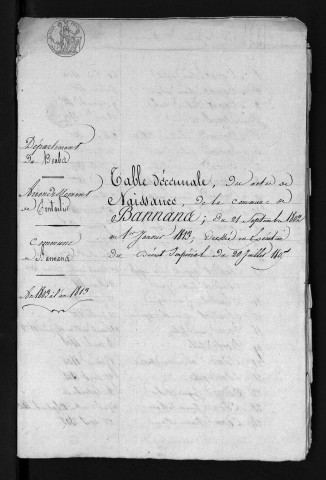 Département
du Doubs
Arrondissement
de Pontarlier
Commune
de Bannans
An 1803 à l'an 1813
Table décennale, des actes de
Naissance, de la commune de
Bannans; du 21 Septembre 1802
au 1er Janvier 1813; dressée en Exécution
du décret Impérial du 20 Juillet